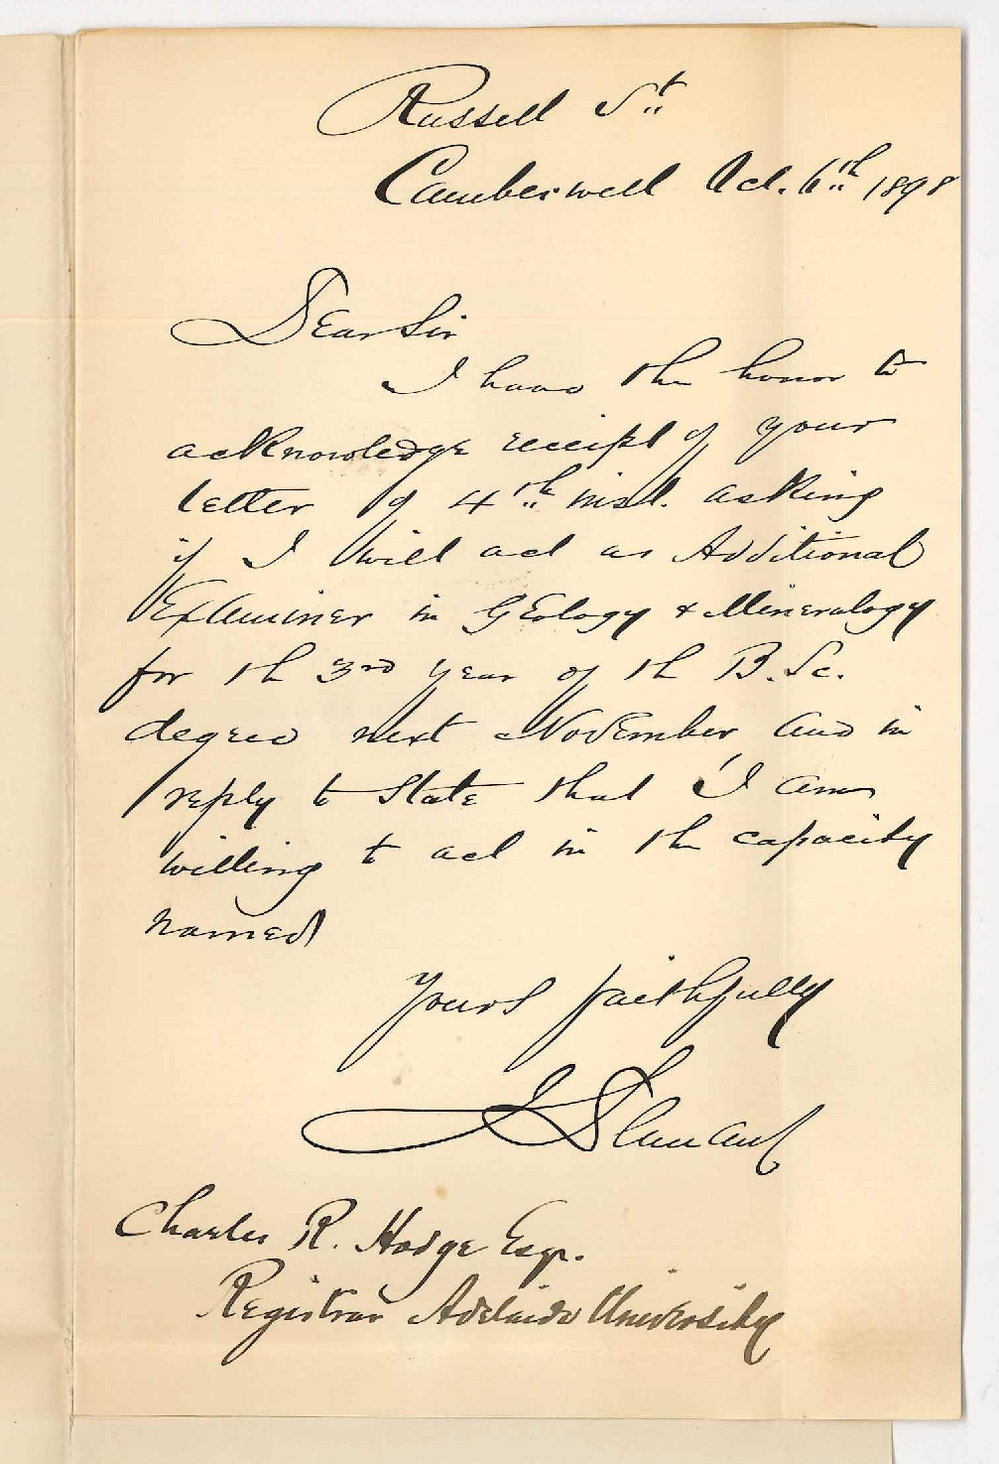 Russell St
Camberwell Oct. 6th 1898
Dear Sir
I have the honor to
acknowledge receipt of your
letter of 4th inst. asking
if I will act as Additional
Examiner in Geology & Mineralogy
for the 3rd year of the B.Sc.
degree next November and in
reply to state that I am
willing to act in the capacity
named
Yours faithfully
Charles R. Hodge Esqr.
Registrar Adelaide University